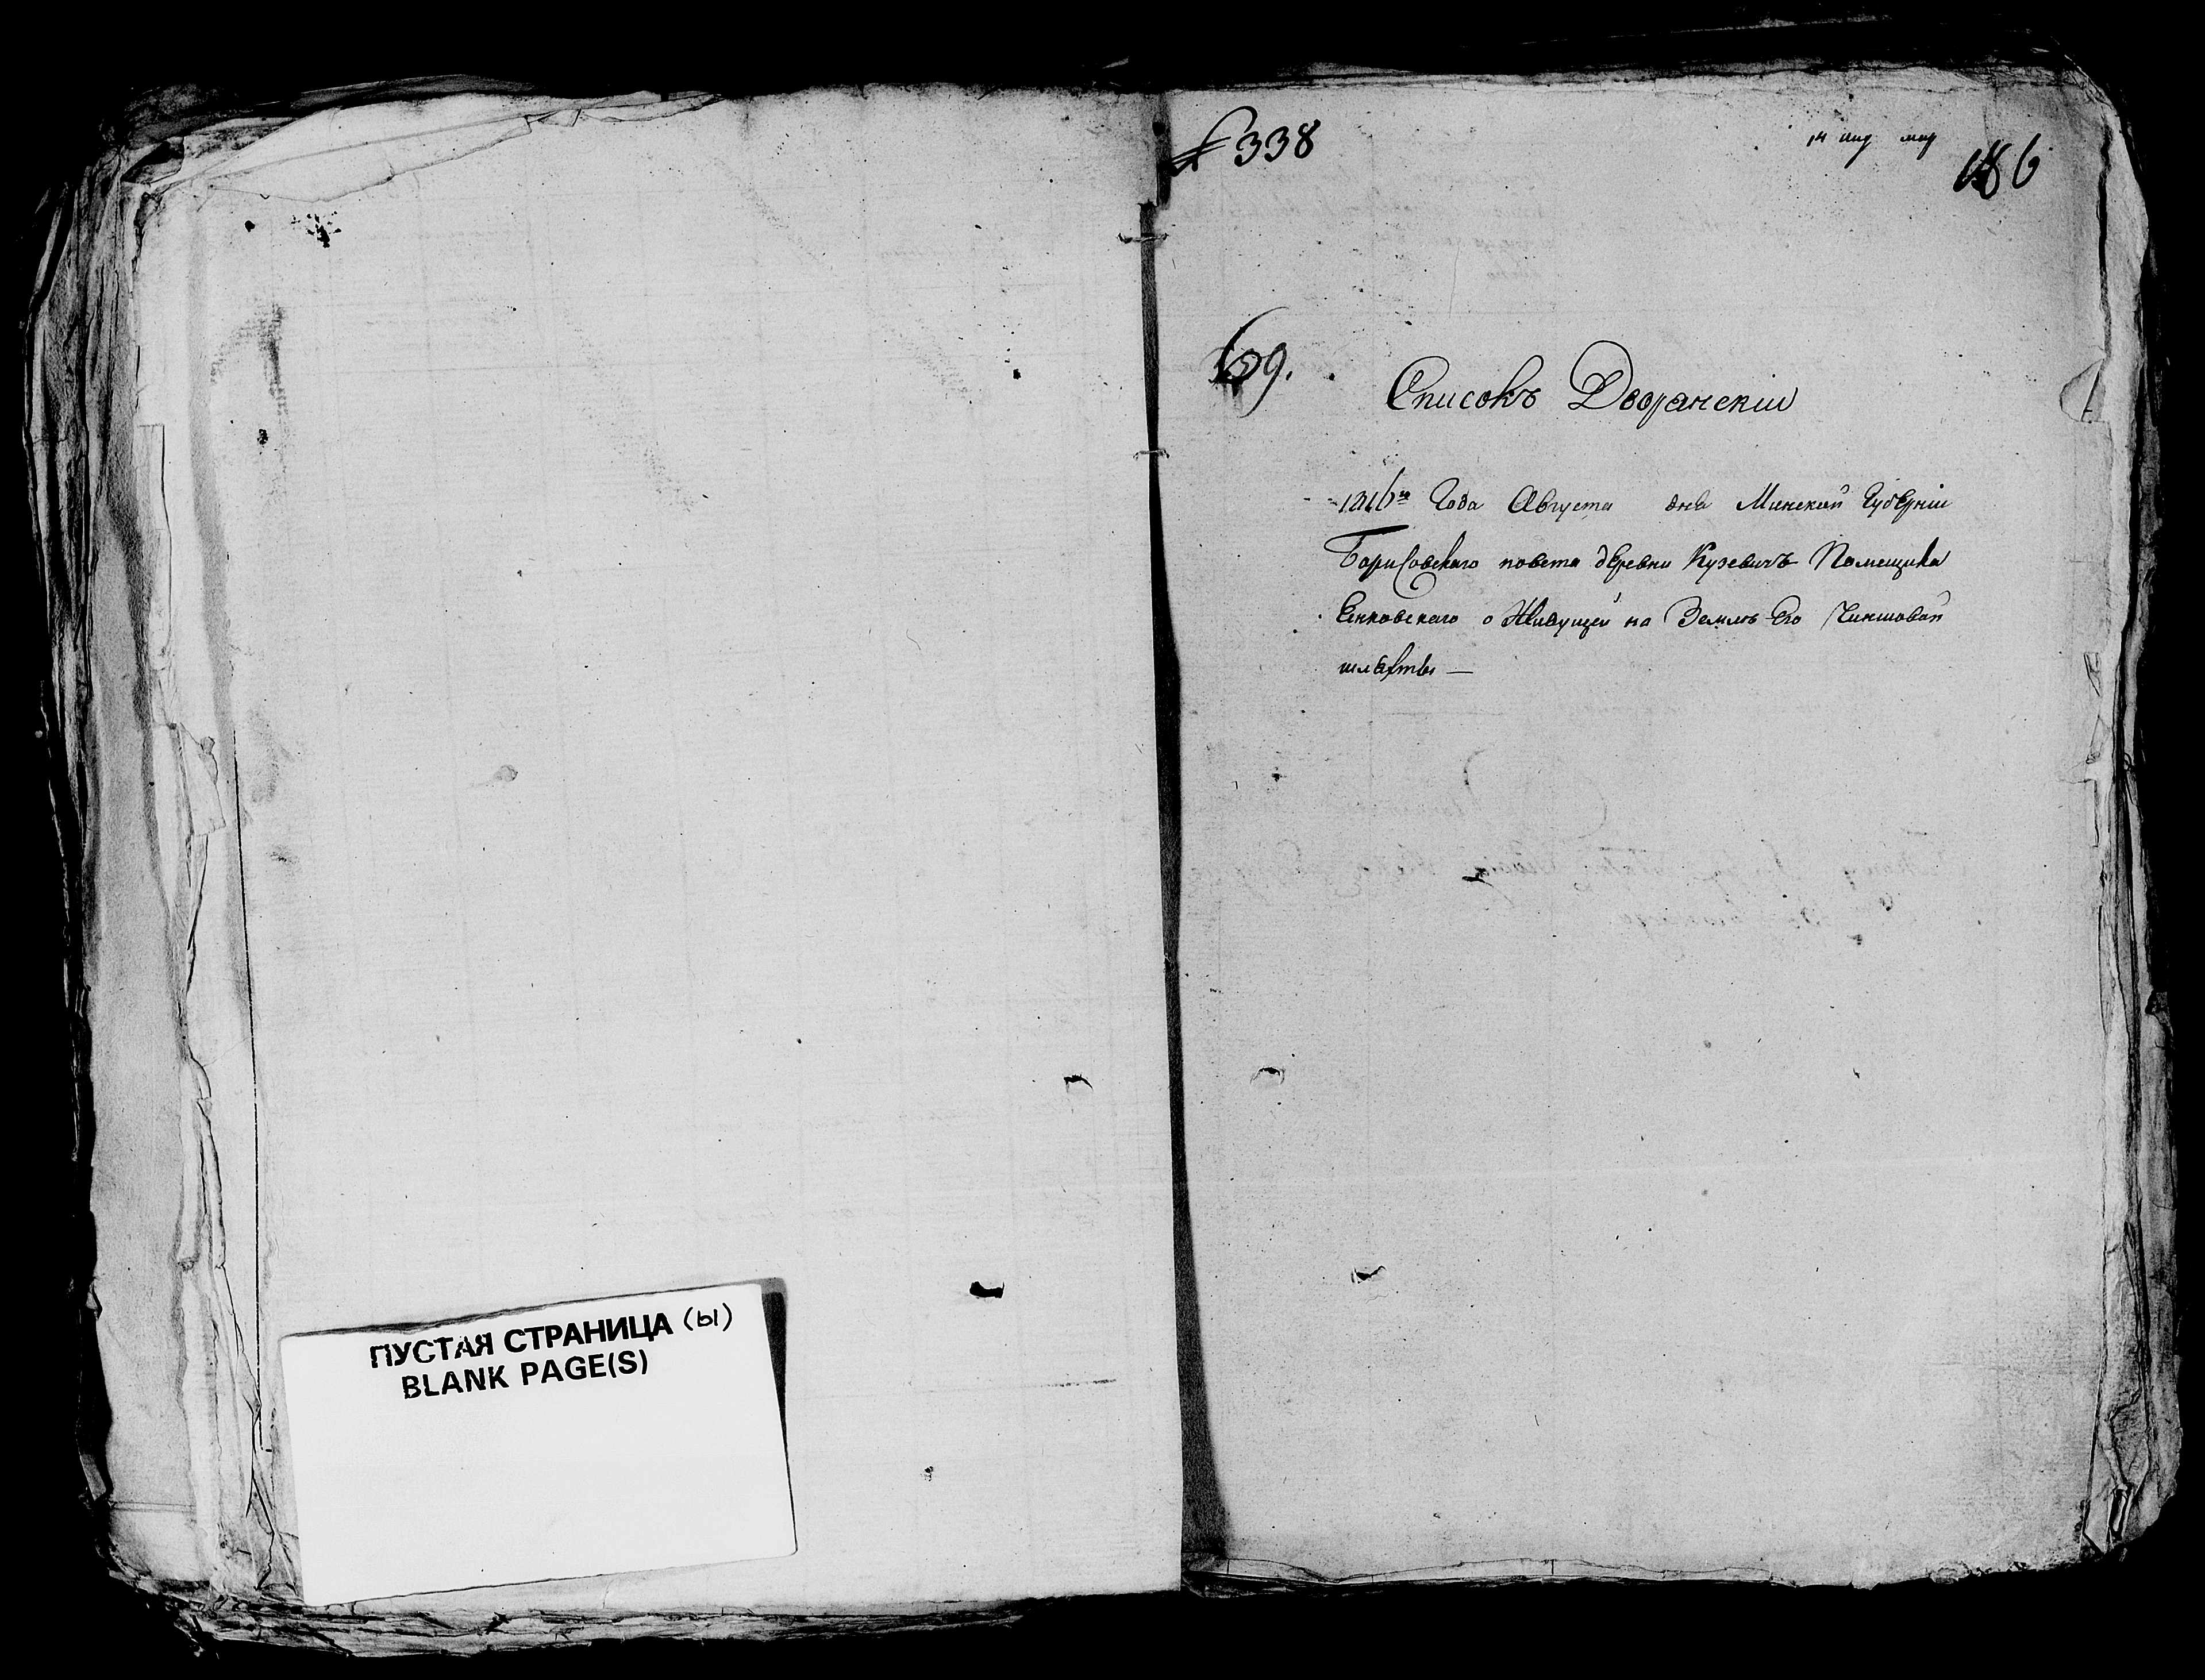 ПУСТАЯ СТРАНИЦА (ы)
BLANK PAGE(S)
338
186
69.
Списокъ Дворянскіи
1816го Года Августа дня Минской Губерніи
Борисовскаго повета деревни Кузевичъ Помещика
Енковскаго о Живущей на Землѣ Его Чиншовой
шляхты —